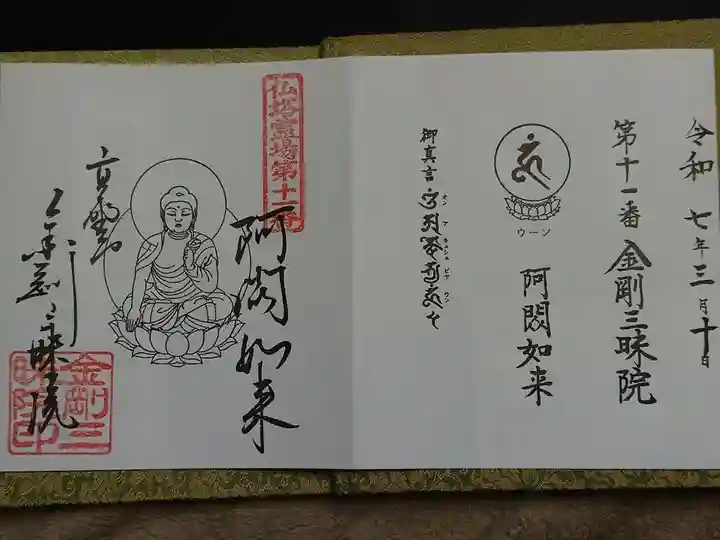 令和七年三月十日
第十一番 金剛三昧院
ウーン
阿閦如来
御真言
オン ア キシュ ビヤ ウン
仏塔霊場第十一番
阿閦如来
高野山
金剛三昧院
金剛三
昧院印